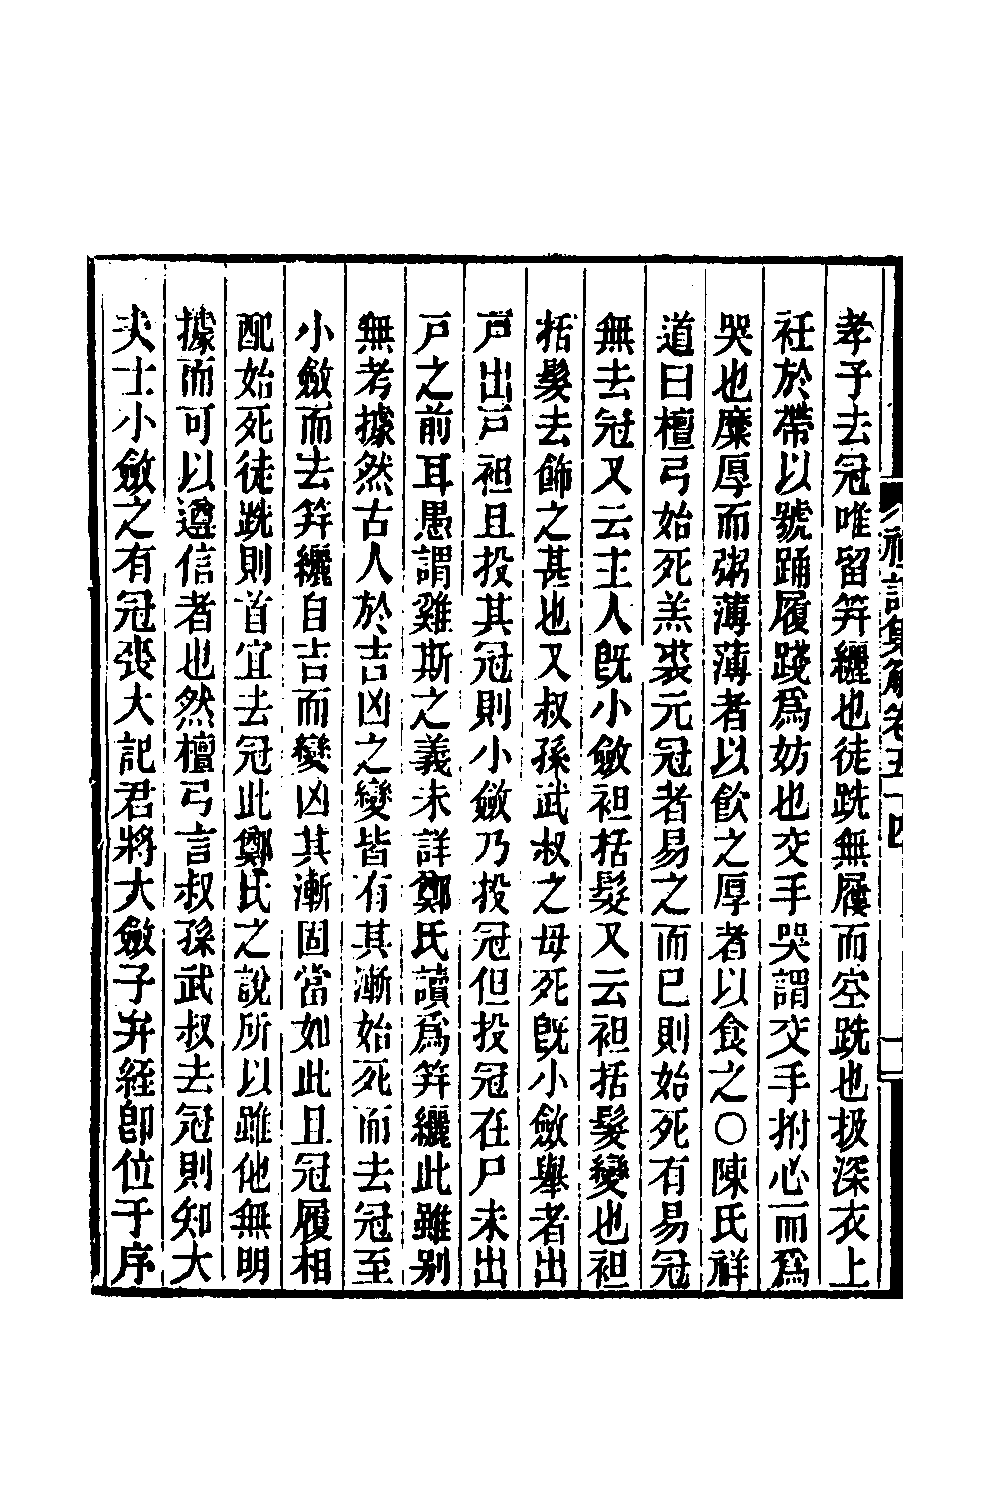 禮記集解卷五十四
孝子去冠唯留笄纚也徒跣無屨而空跣也扱深衣上
衽於帶以號踊履踐爲妨也交手哭謂交手拊心而爲
哭也糜厚而粥薄薄者以飲之厚者以食之○陳氏祥
道曰檀弓始死羔裘元冠者易之而已則始死有易冠
無去冠又云主人旣小斂袒括髮又云袒括髮變也袒
括髮去飾之甚也又叔孫武叔之母死旣小斂舉者出
戸出戸袒且投其冠則小斂乃投冠但投冠在尸未出
戸之前耳愚謂雞斯之義未詳鄭氏讀爲笄纚此雖别
無考據然古人於吉凶之變皆有其漸始死而去冠至
小斂而去笄纚自吉而變凶其漸固當如此且冠履相
配始死徒跣則首宜去冠此鄭氏之說所以雖他無明
據而可以遵信者也然檀弓言叔孫武叔去冠則知大
夫士小斂之有冠喪大記君將大斂子弁絰卽位于序